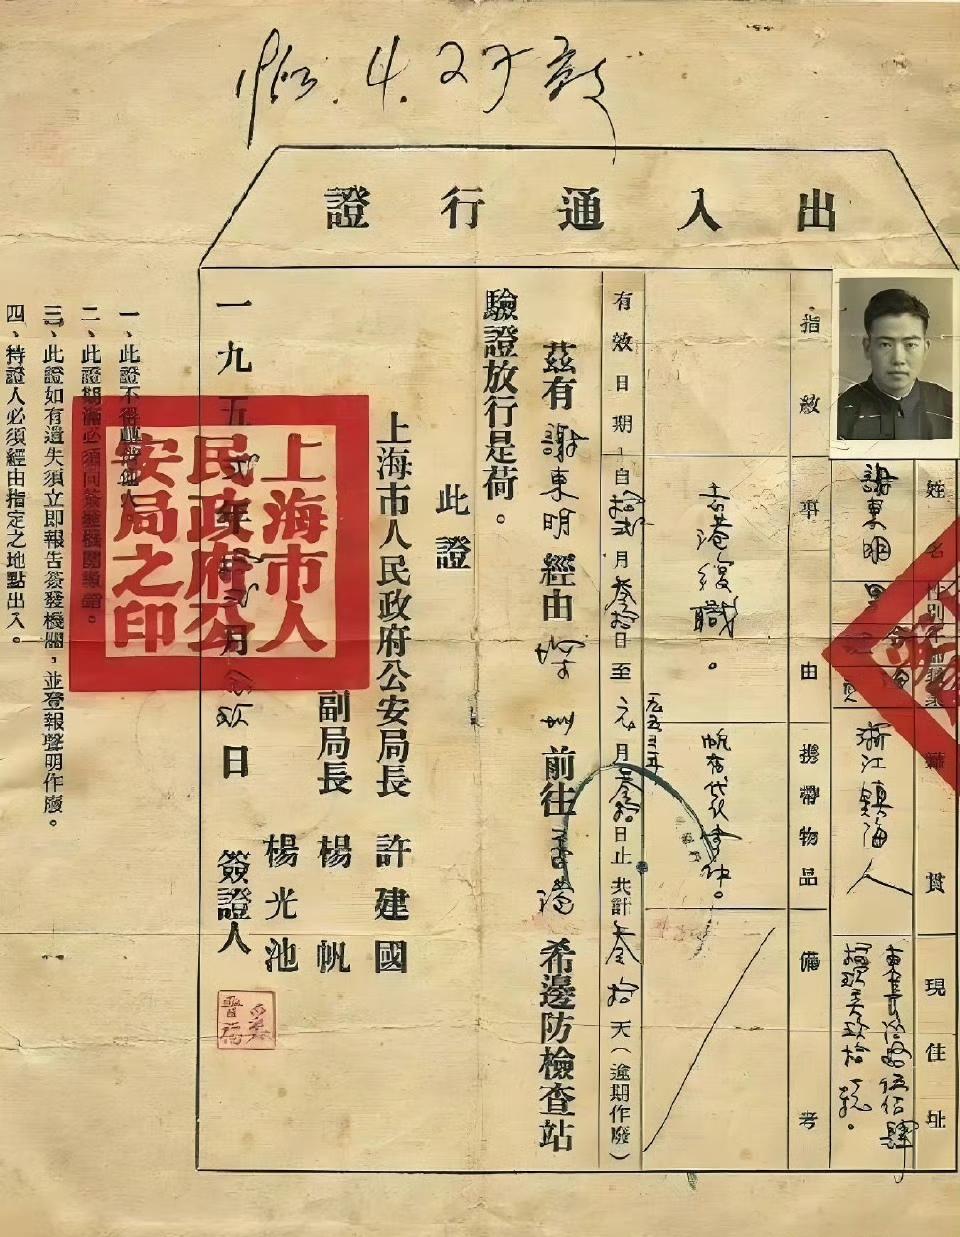 4.27
出入通行證
姓名
謝東明
性別
男
籍貫
浙江鎮海人
現住址
東長治路伍佰肆
號。
指紋
事由
去港復職。
攜帶物品
備考
有效日期
自拾弍月叁拾日至
一九五三年
元月叁拾日止共計叁拾天(逾期作廢)
茲有謝東明經由深圳前往香港希邊防檢查站
驗證放行是荷。
此證
上海市人民政府公安局長 許建國
副局長 楊帆
楊光池
一九五弍年 月 日 簽證人
上海市人
民政府公
安局之印
一、此證不得轉借他人
二、此證期滿必須向簽發機關繳銷。
三、此證如有遺失須立即報告簽發機關,並登報聲明作廢。
四、持證人必須經由指定之地點出入。